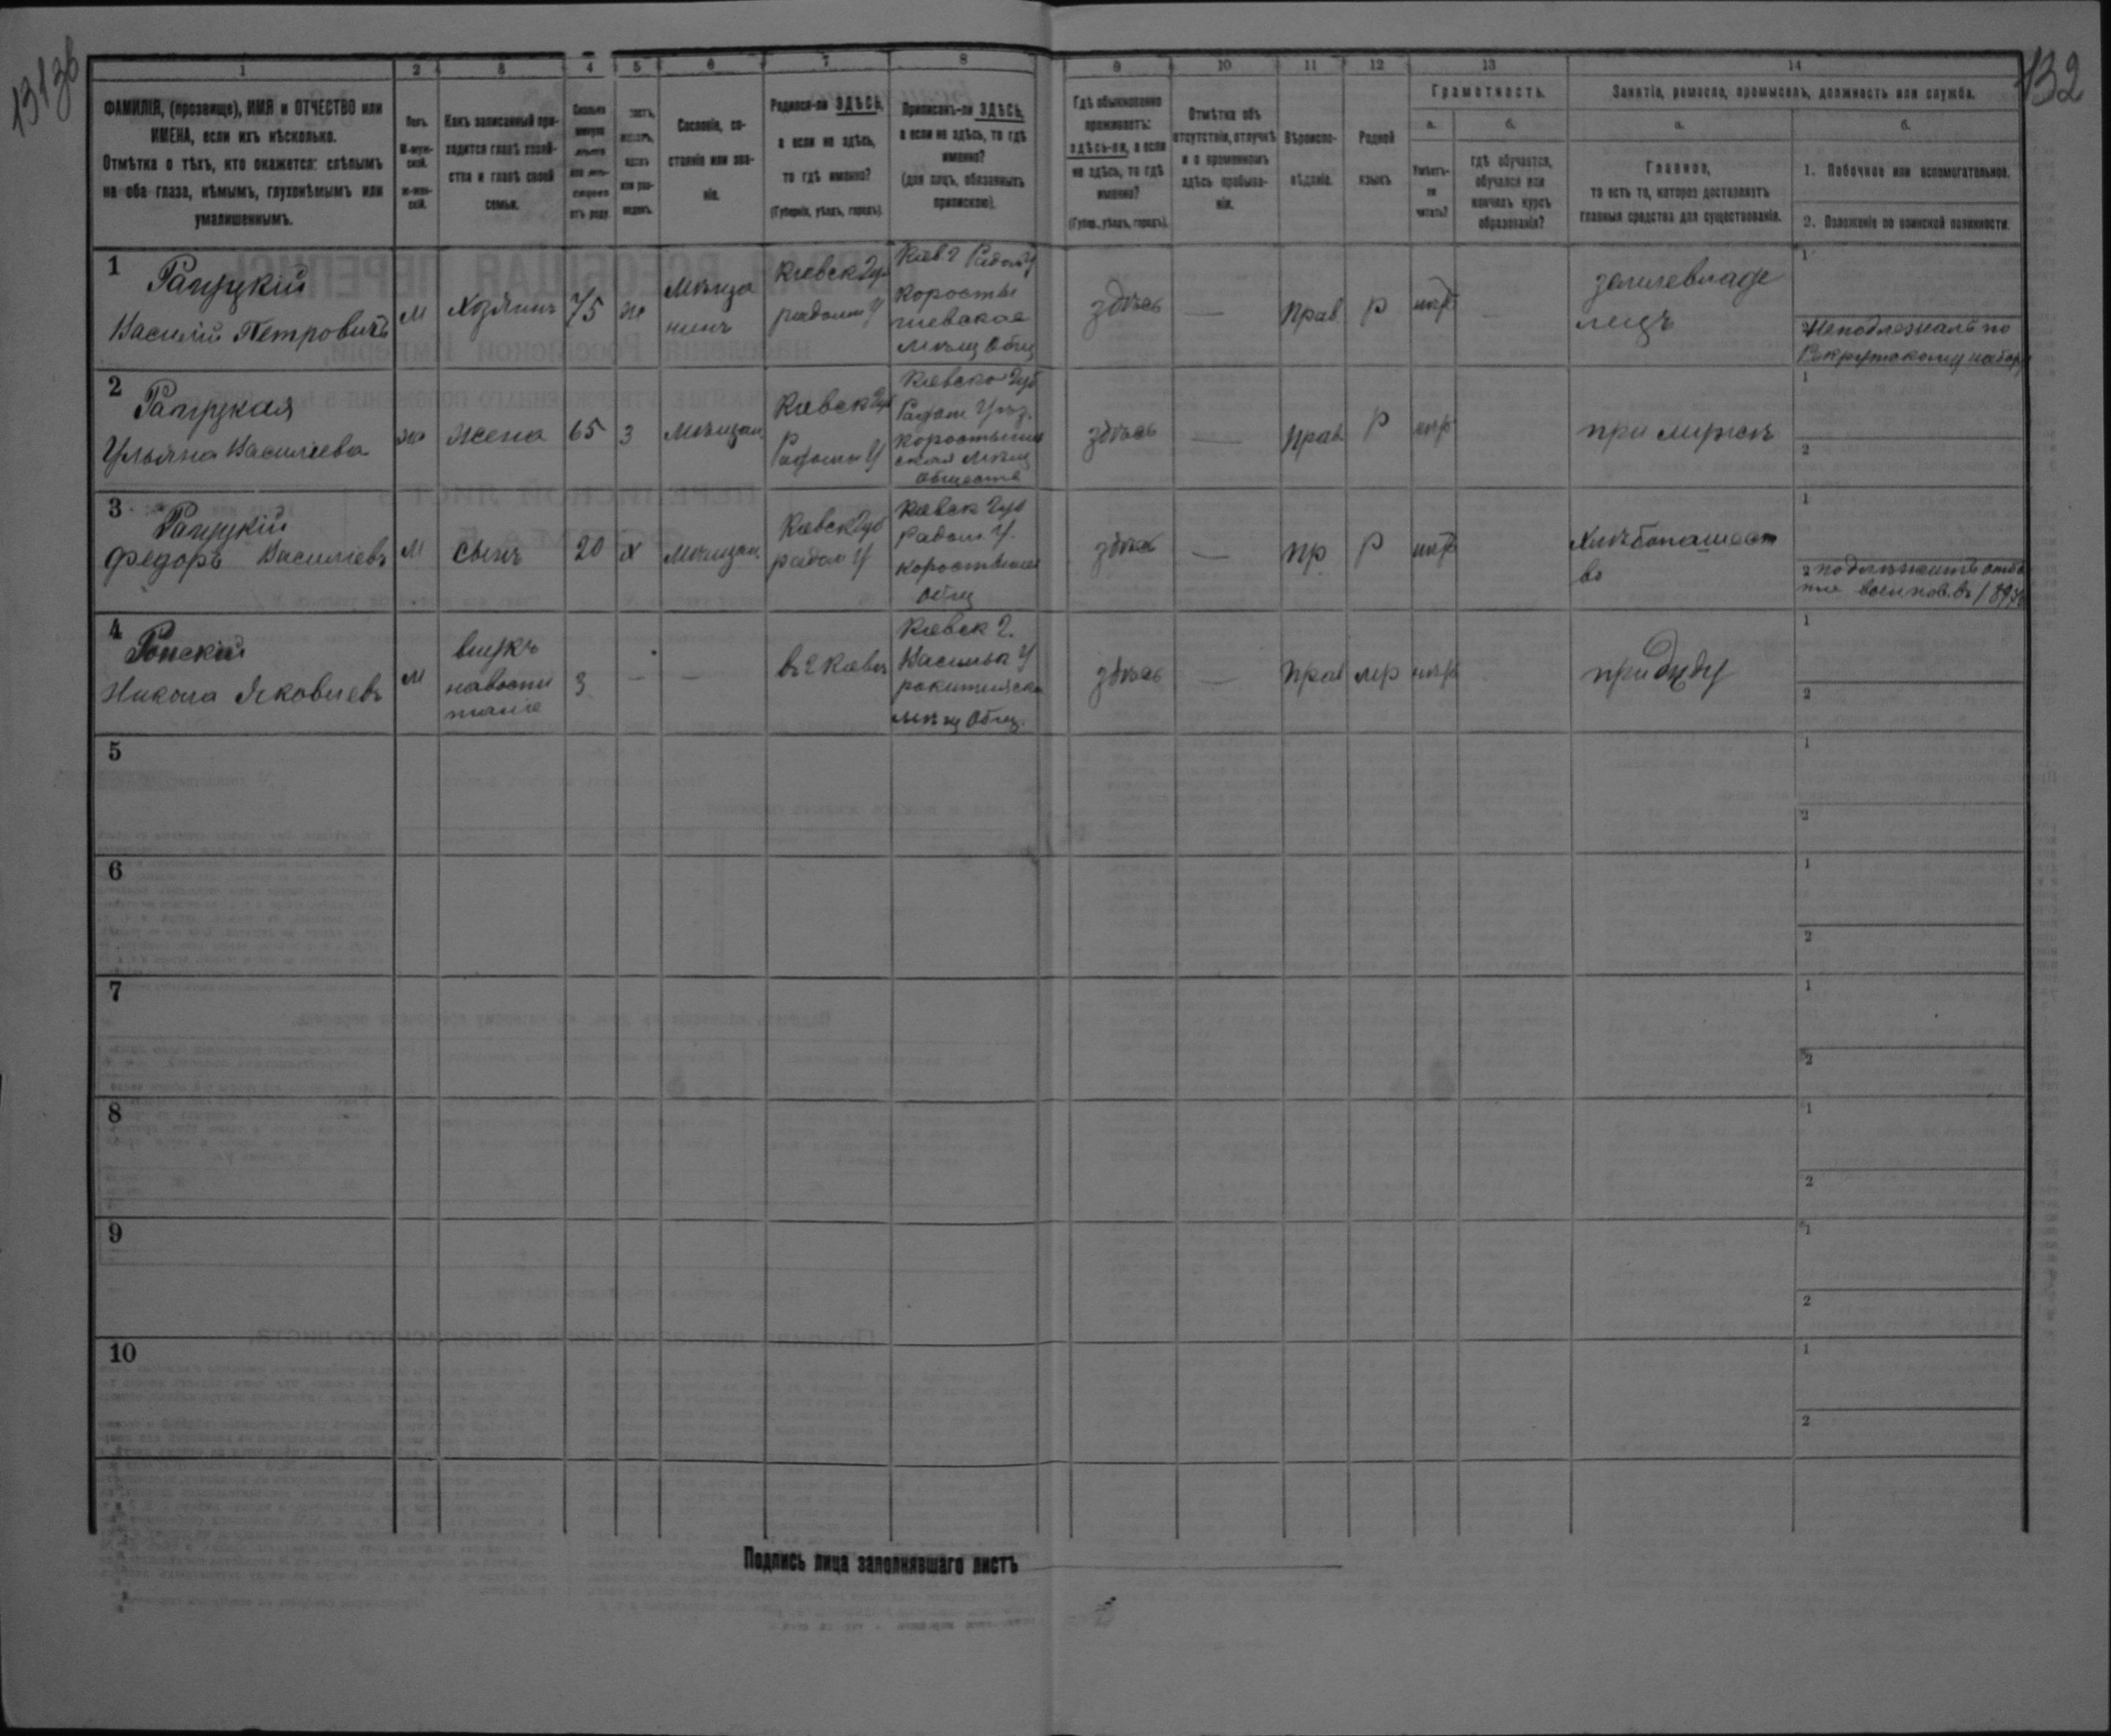 131зв
132
1 2 3 4 5 6 7 8 9 10 11 12 13 14
ФАМИЛІЯ, (прозвище), ИМЯ и ОТЧЕСТВО или
ИМЕНА, если ихъ нѣсколько.
Отмѣтка о тѣхъ, кто окажется: слѣпымъ
на оба глаза, нѣмымъ, глухонѣмымъ или
умалишеннымъ.
Полъ.
М-муж-
ской.
ж-жен-
скій.
Какъ записанный при-
ходится главѣ хозяй-
ства и главѣ своей
семьи.
Сколько
минуло
лѣтъ
или мѣ-
сяцевъ
отъ роду.
холостъ,
женатъ,
вдовъ
или раз-
веденъ.
Сословіе, со-
стояніе или зва-
ніе.
Родился-ли ЗДѢСЬ,
а если не здѣсь,
то гдѣ именно?
(Губернія, уѣздъ, городъ).
Приписанъ-ли ЗДѢСЬ,
а если не здѣсь, то гдѣ
именно?
(для лицъ, обязанныхъ
припискою).
Гдѣ обыкновенно
проживаетъ:
здѣсь-ли, а если
не здѣсь, то гдѣ
именно?
(Губер., уѣздъ, городъ).
Отмѣтка объ
отсутствіи, отлучкѣ
и о временномъ
здѣсь пребыва-
ніи.
Вѣроиспо-
вѣданіе.
Родной
языкъ
Грамотность.
а.
Умѣетъ-
ли
читать?
б.
гдѣ обучается,
обучался или
кончилъ курсъ
образованія?
Занятіе, ремесло, промыселъ, должность или служба.
а.
Главное,
то есть то, которое доставляетъ
главныя средства для существованія.
б.
1. Побочное или вспомогательное.
2. Положеніе по воинской повинности.
1
Василій Петровичъ
М
Хозяинъ
75
ж
Мѣща
нинъ
Киевск Губ
радом У
Киев г Радом У
Коросты
шевское
мѣщ Общ
здѣсь
—
Прав
Р
нѣтъ
—
землевладе
лецъ
1
2 Неподлежалъ по
Рекрутскому набору
2
Ульяна Василіева
жена
65
з
Мѣщан
Киевск Губ
Радом У
Киевско Губ
Радом Уѣз.
Коростыше
ская мѣщ
Обществ
здѣсь
—
Прав
Р
нѣтъ
при мужѣ
1
2
3
Федоръ Василіевъ
М
сынъ
20
х
Мѣщан
Киевск Губ
радом У
Киевск Губ
Радом У.
коростыше
общ
здѣсь
—
пр
Р
нѣтъ
Хлѣбопашест
во
1
2 подлѣжитъ отбы
тие воин пов. въ 1897
4
Никола Яковлевъ
М
внукъ
на воспи
тание
3
—
—
въ г Киевѣ
Киевск г.
Василь У
ракитянска
мѣщ Общ.
здѣсь
—
Прав
мр
нѣтъ
при дѣду
1
2
5
1
2
6
1
2
7
1
2
8
1
2
9
1
2
10
1
2
Подпись лица заполнявшаго листъ